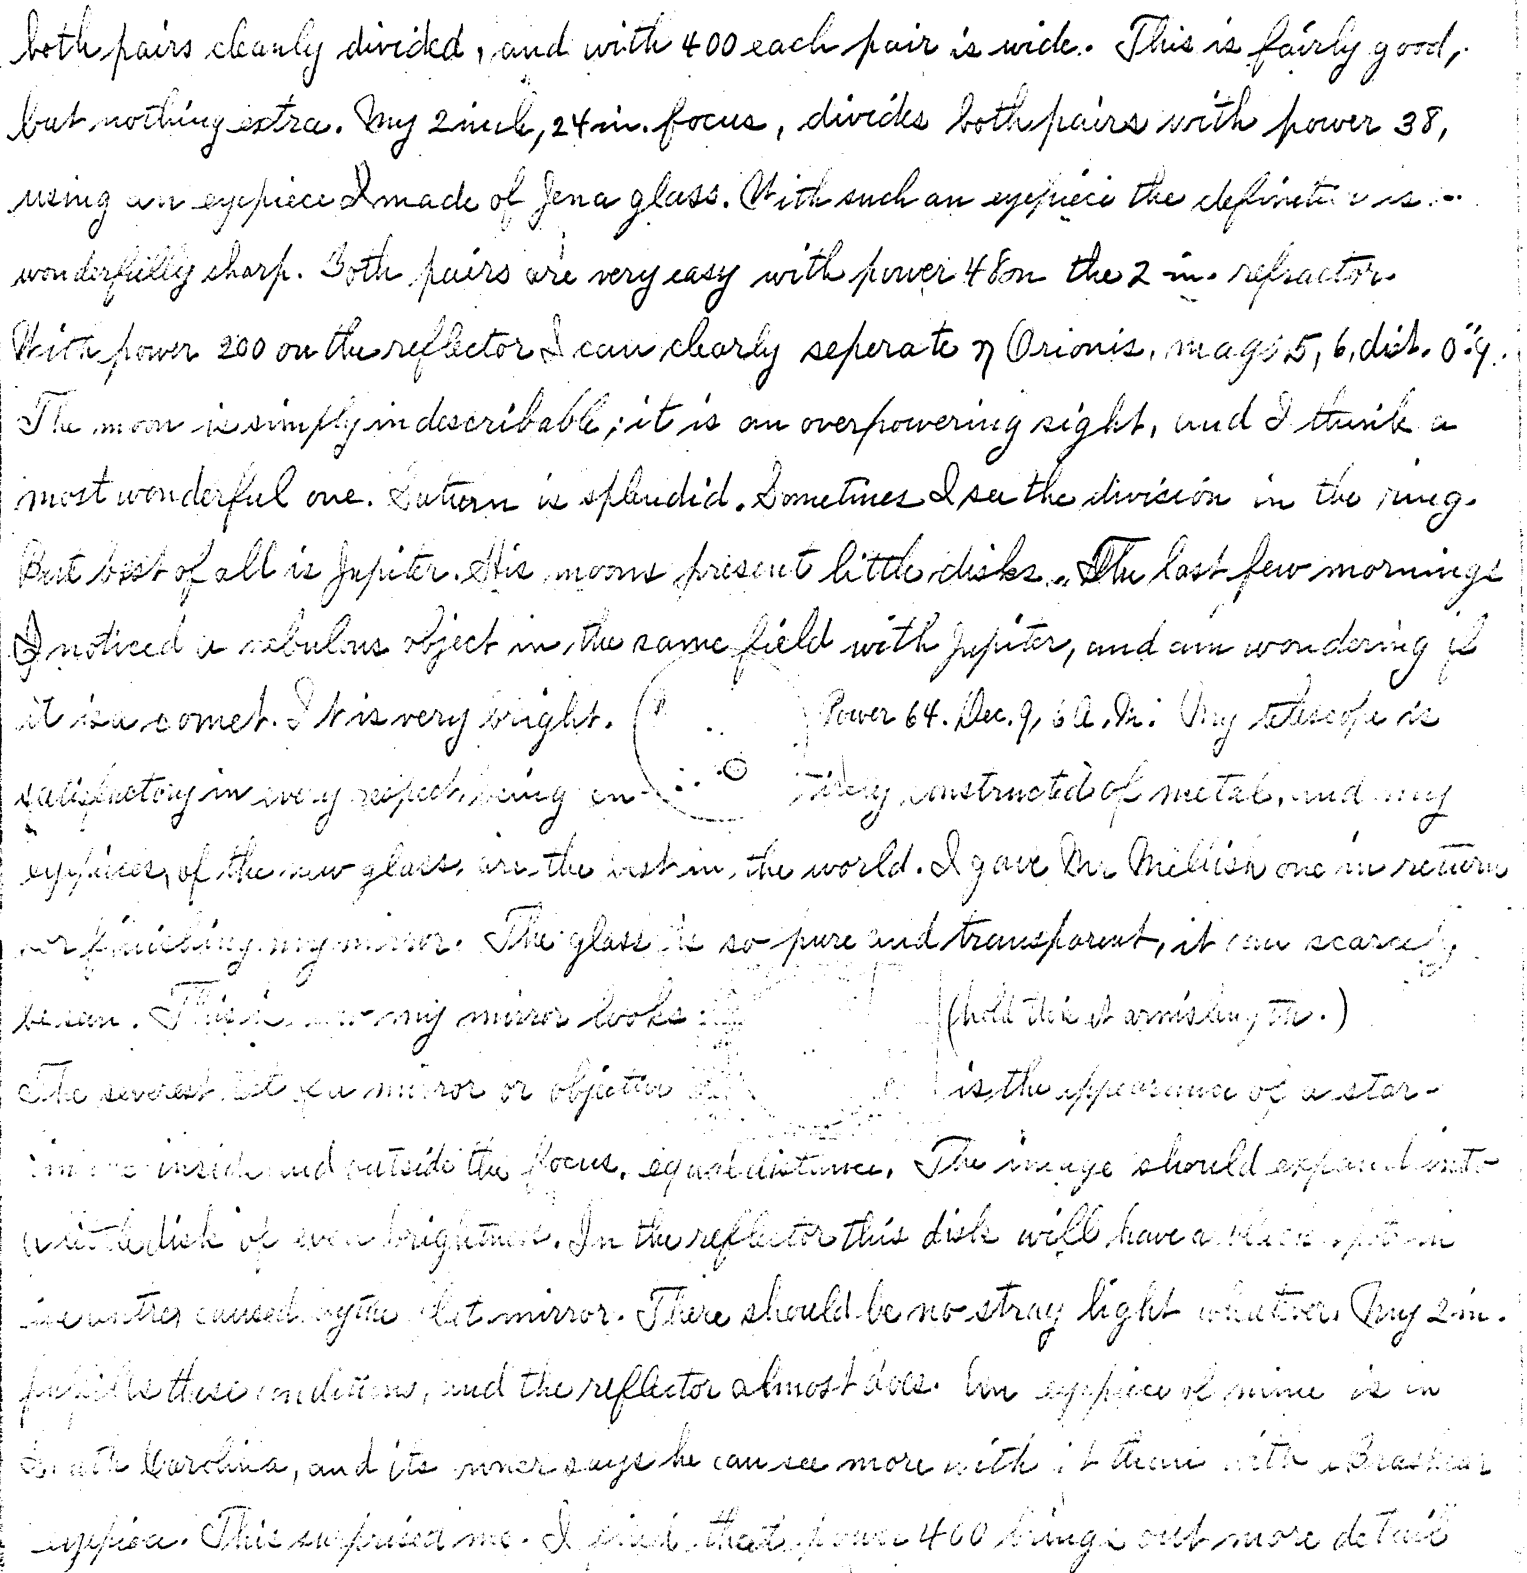 both pairs cleanly divided, and with 400 each pair is wide. This is fairly good,
but nothing extra. My 2 inch, 24 in. focus, divides both pairs with power 38,
using an eyepiece I made of Jena glass. With such an eyepiece the definition is
wonderfully sharp. Both pairs are very easy with power 48 on the 2 in. refractor.
With power 200 on the reflector I can clearly seperate η Orionis, mags 5, 6, dist. 0".9.
The moon is simply indescribable; it is an overpowering sight, and I think a
most wonderful one. Saturn is splendid. Sometimes I see the division in the ring.
But best of all is Jupiter. His moons present little disks. The last few mornings
I noticed a nebulous object in the same field with Jupiter, and am wondering if
it is a comet. It is very bright. Power 64. Dec. 9, 6 A.M. My telescope is
satisfactory in every respect, being en- tirely constructed of metal, and my
eyepieces, of the new glass, are the best in the world. I gave Mr Mellish one in return
for finishing my mirror. The glass is so pure and transparent, it can scarcely
be seen. This is how my mirror looks (hold this at arms length.)
The severest test of a mirror or objective is the appearance of a star-
image inside and outside the focus, equal distance. The image should expand into
a little disk of even brightness. In the reflector this disk will have a black spot in
the centre, caused by the flat mirror. There should be no stray light whatever. My 2 in.
fulfills these conditions, and the reflector almost does. An eyepiece of mine is in
South Carolina, and its owner says he can see more with it than with a Brashear
eyepiece. This surprised me. I find that power 400 brings out more detail